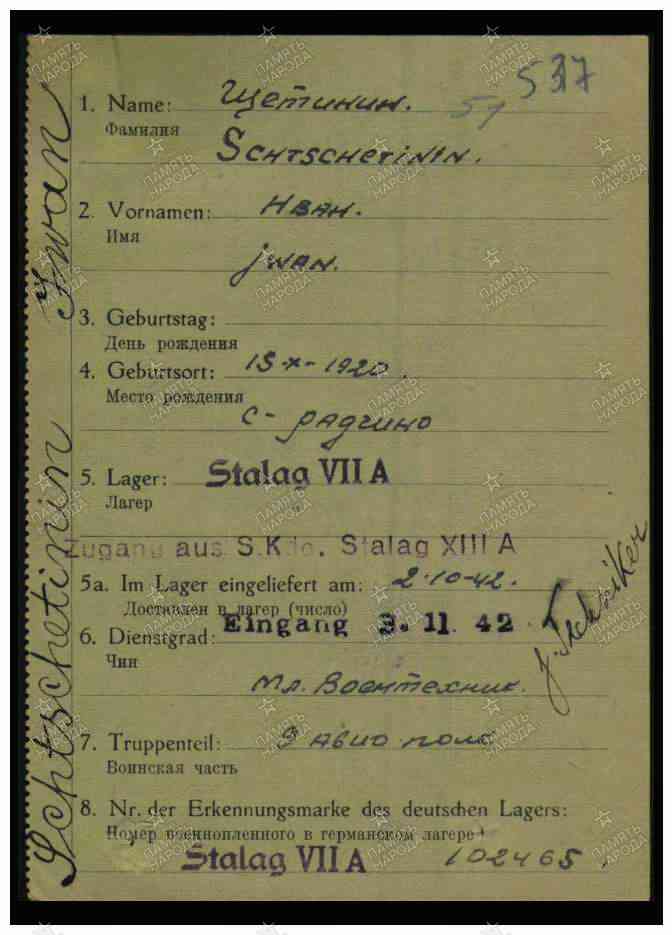 537
51
1. Name: Щетинин.
Фамилия
SCHTSCHETININ.
2. Vornamen: Иван.
Имя
jwan.
3. Geburtstag:
День рождения
4. Geburtsort: 15-X-1920.
Место рождения
с-Радчино
5. Lager: Stalag VII A
Лагер
Zugang aus S.Kdo. Stalag XIII A
5a. Im Lager eingeliefert am: 2-10-42.
Доставлен в лагер (число)
Eingang 3. 11. 42
6. Dienstgrad:
Чин
Мл. Воентехник.
7. Truppenteil: 9 авио полк
Воинская часть
8. Nr. der Erkennungsmarke des deutschen Lagers:
Номер военнопленного в германском лагере
Stalag VII A 102465.
Schtschetinin Iwan
ПАМЯТЬ
НАРОДА